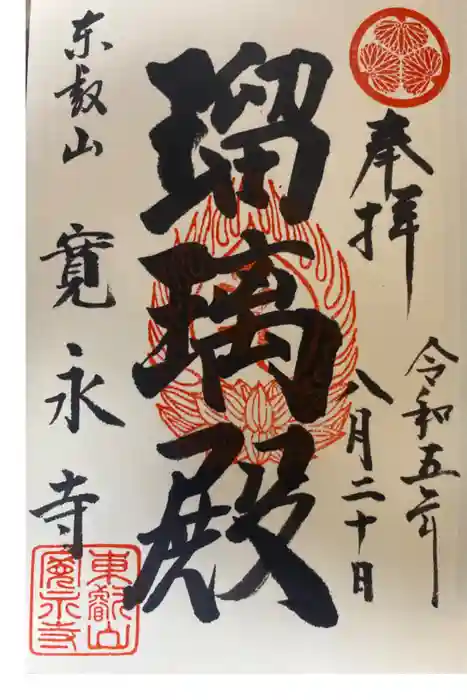 奉拝
令和五年
八月二十日
瑠璃殿
東叡山
寛永寺
東叡山
寛永寺